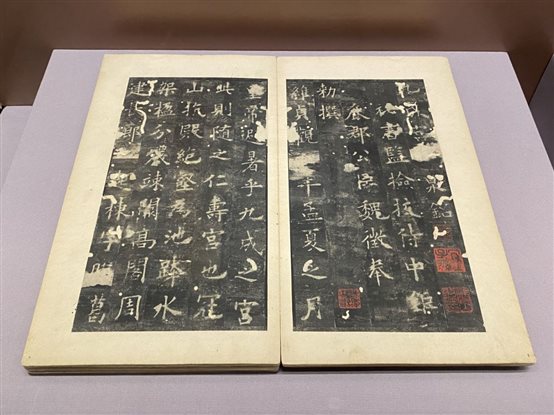 九 泉銘
秘書監檢校侍中鉅
鹿郡公臣魏徵奉
勑撰
維貞觀年孟夏之月
皇帝避暑乎九成之宮
此則隨之仁壽宮也冠
山抗殿絕壑為池跨水
架楹分巖竦闕高閣周
建廊起棟宇膠葛